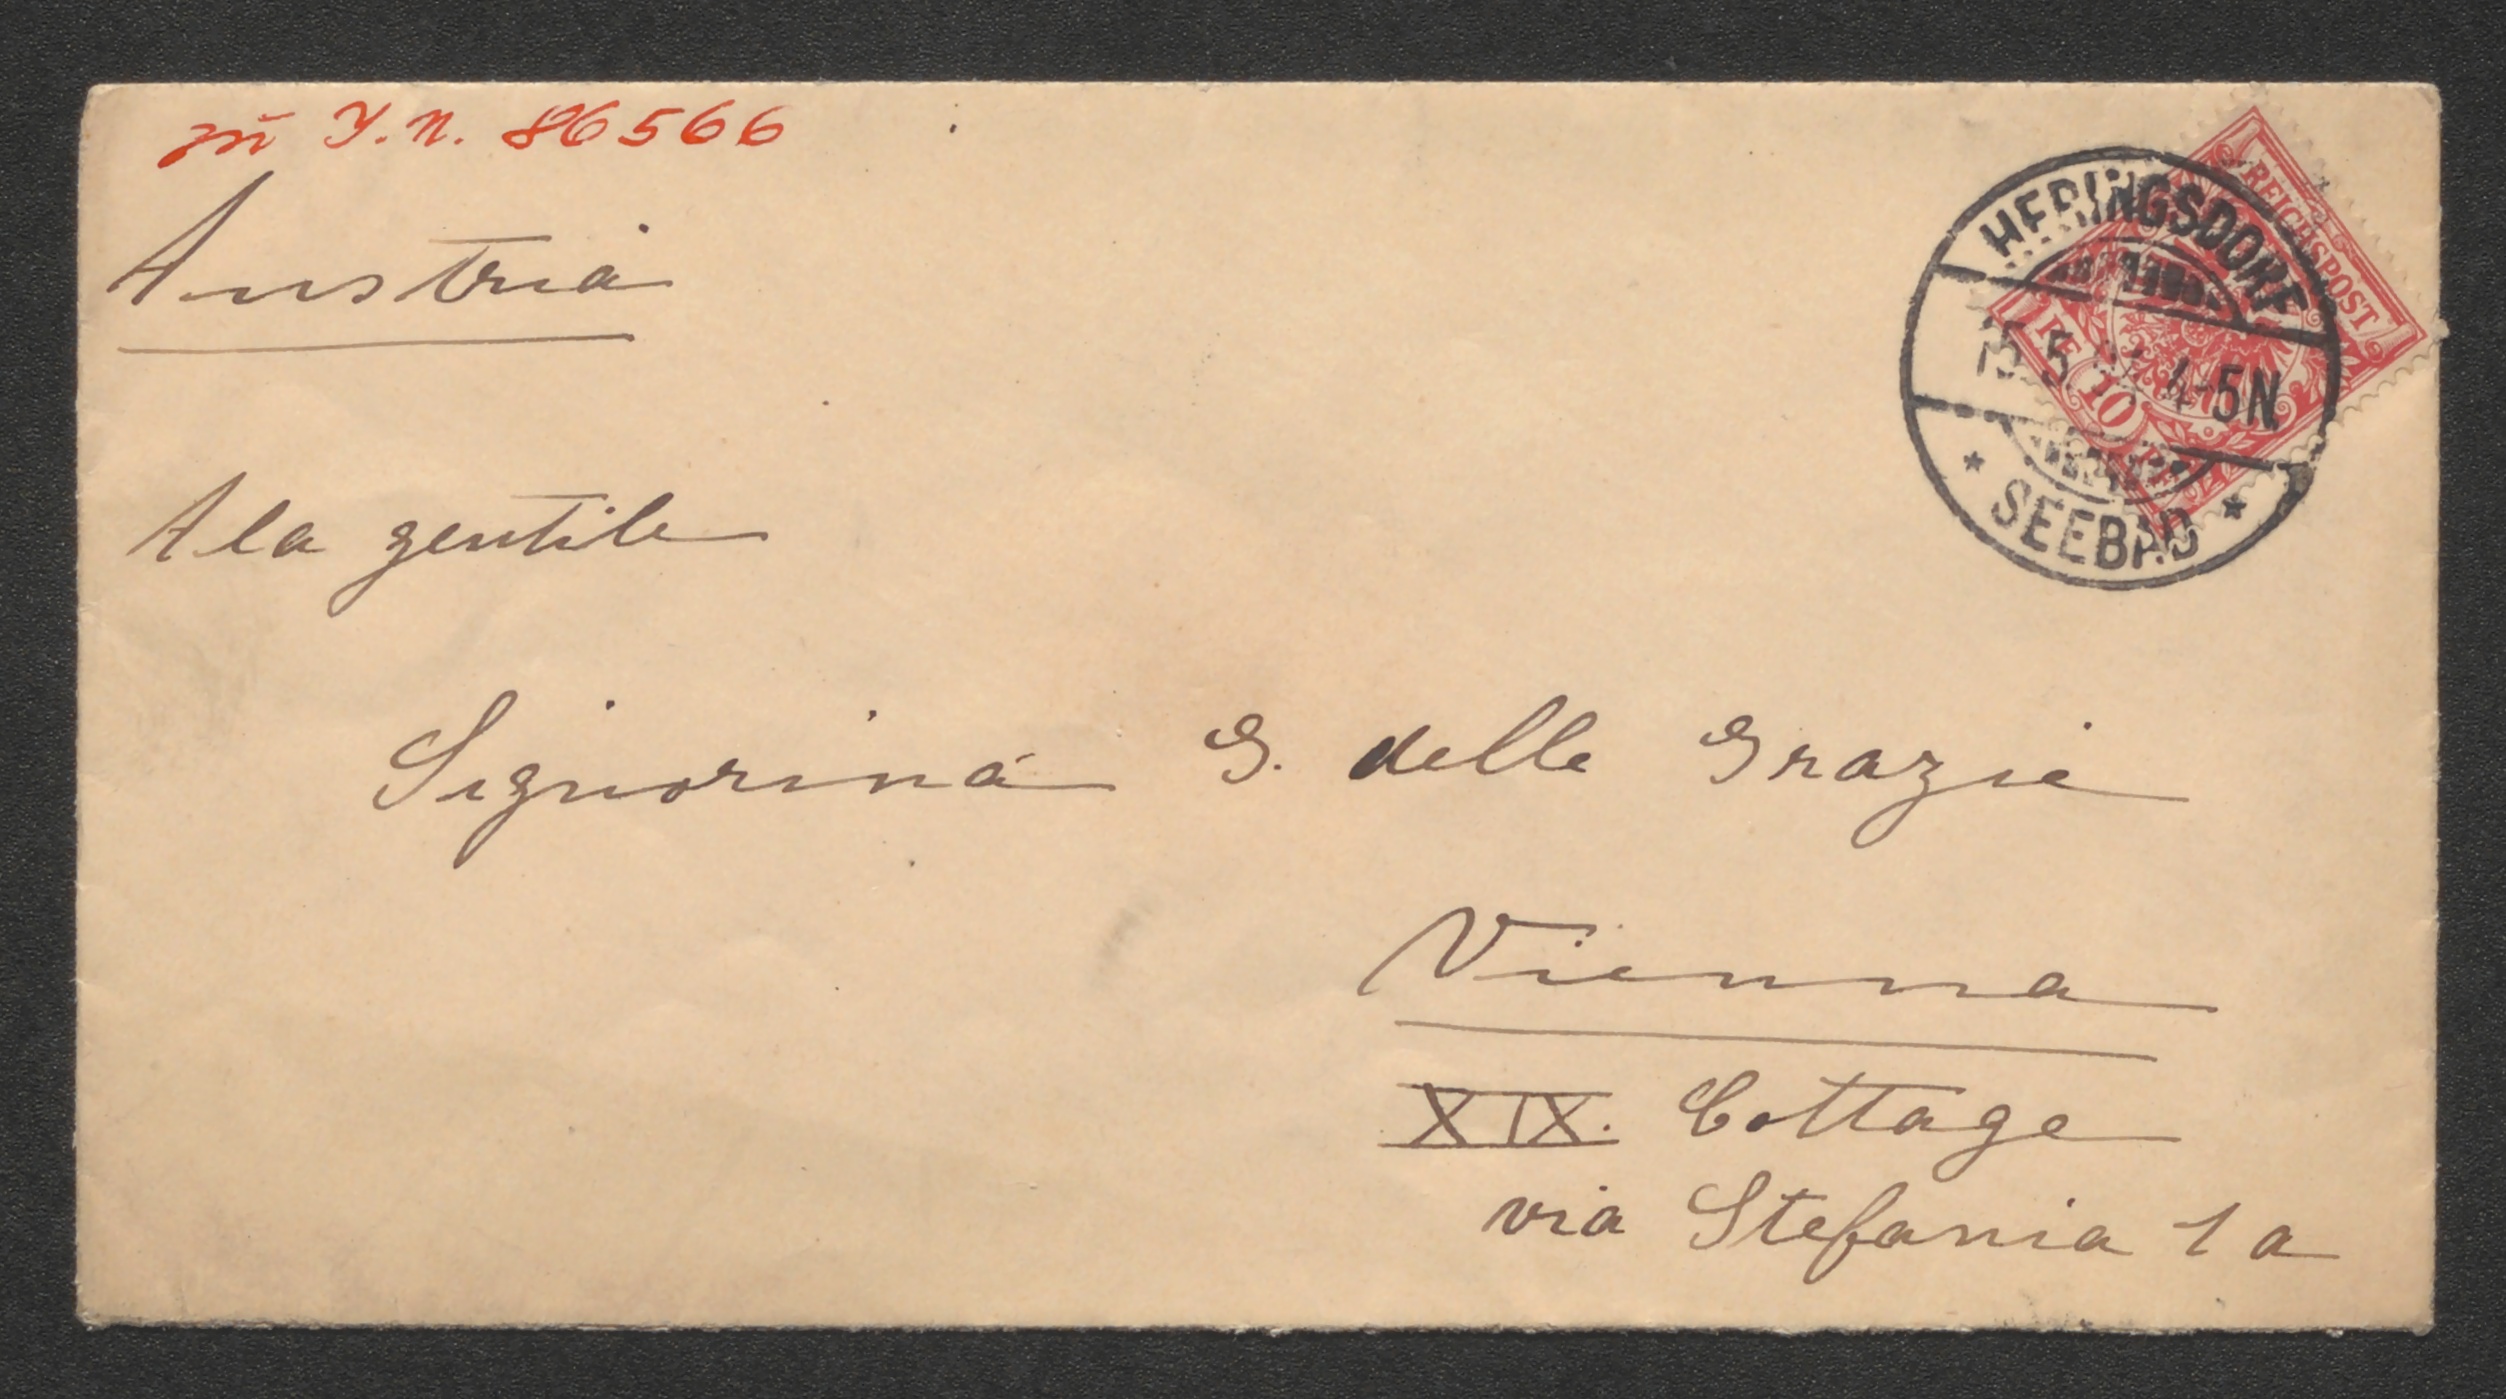 zu I.N. 86566
Austria
A la gentile
Signorina G. delle Grazie
Vienna
XIX. Cottage
via Stefania 1a
HERINGSDORF
5 4-5N
* SEEBAD *
REICHSPOST
10